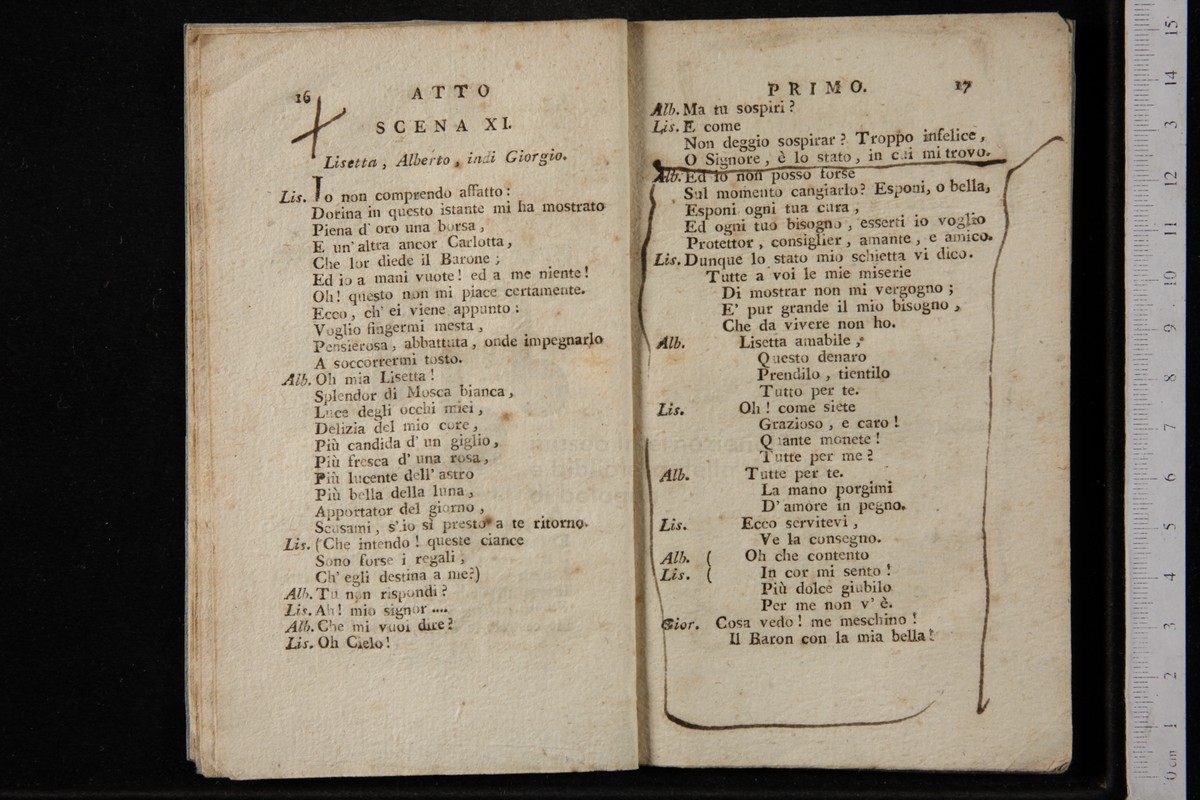 16 ATTO
SCENA XI.
Lisetta, Alberto, indi Giorgio.
Lis. Io non comprendo affatto:
Dorina in questo istante mi ha mostrato
Piena d' oro una borsa,
E un' altra ancor Carlotta,
Che lor diede il Barone;
Ed io a mani vuote! ed a me niente!
Oh! questo non mi piace certamente.
Ecco, ch' ei viene appunto:
Voglio fingermi mesta,
Pensierosa, abbattuta, onde impegnarlo
A soccorrermi tosto.
Alb. Oh mia Lisetta!
Splendor di Mosca bianca,
Luce degli occhi miei,
Delizia del mio core,
Più candida d' un giglio,
Più fresca d' una rosa,
Più lucente dell' astro
Più bella della luna,
Apportator del giorno,
Scusami, s' io sì presto a te ritorno.
Lis. (Che intendo! queste ciance
Sono forse i regali,
Ch' egli destina a me?)
Alb. Tu non rispondi?
Lis. Ah! mio signor ....
Alb. Che mi vuoi dire?
Lis. Oh Cielo!
PRIMO. 17
Alb. Ma tu sospiri?
Lis. E come
Non deggio sospirar? Troppo infelice,
O Signore, è lo stato, in cui mi trovo.
Alb. Ed io non posso forse
Sul momento cangiarlo? Esponi, o bella,
Esponi ogni tua cura,
Ed ogni tuo bisogno, esserti io voglio
Protettor, consiglier, amante, e amico.
Lis. Dunque lo stato mio schietta vi dico.
Tutte a voi le mie miserie
Di mostrar non mi vergogno;
E' pur grande il mio bisogno,
Che da vivere non ho.
Alb. Lisetta amabile,
Questo denaro
Prendilo, tientilo
Tutto per te.
Lis. Oh! come siete
Grazioso, e caro!
Quante monete!
Tutte per me?
Alb. Tutte per te.
La mano porgimi
D' amore in pegno.
Lis. Ecco servitevi,
Ve la consegno.
Alb. ( Oh che contento
Lis. ( In cor mi sento!
Più dolce giubilo
Per me non v' è.
Gior. Cosa vedo! me meschino!
Il Baron con la mia bella!
15
14
13
12
11
10
9
8
7
6
5
4
3
2
1
0 cm